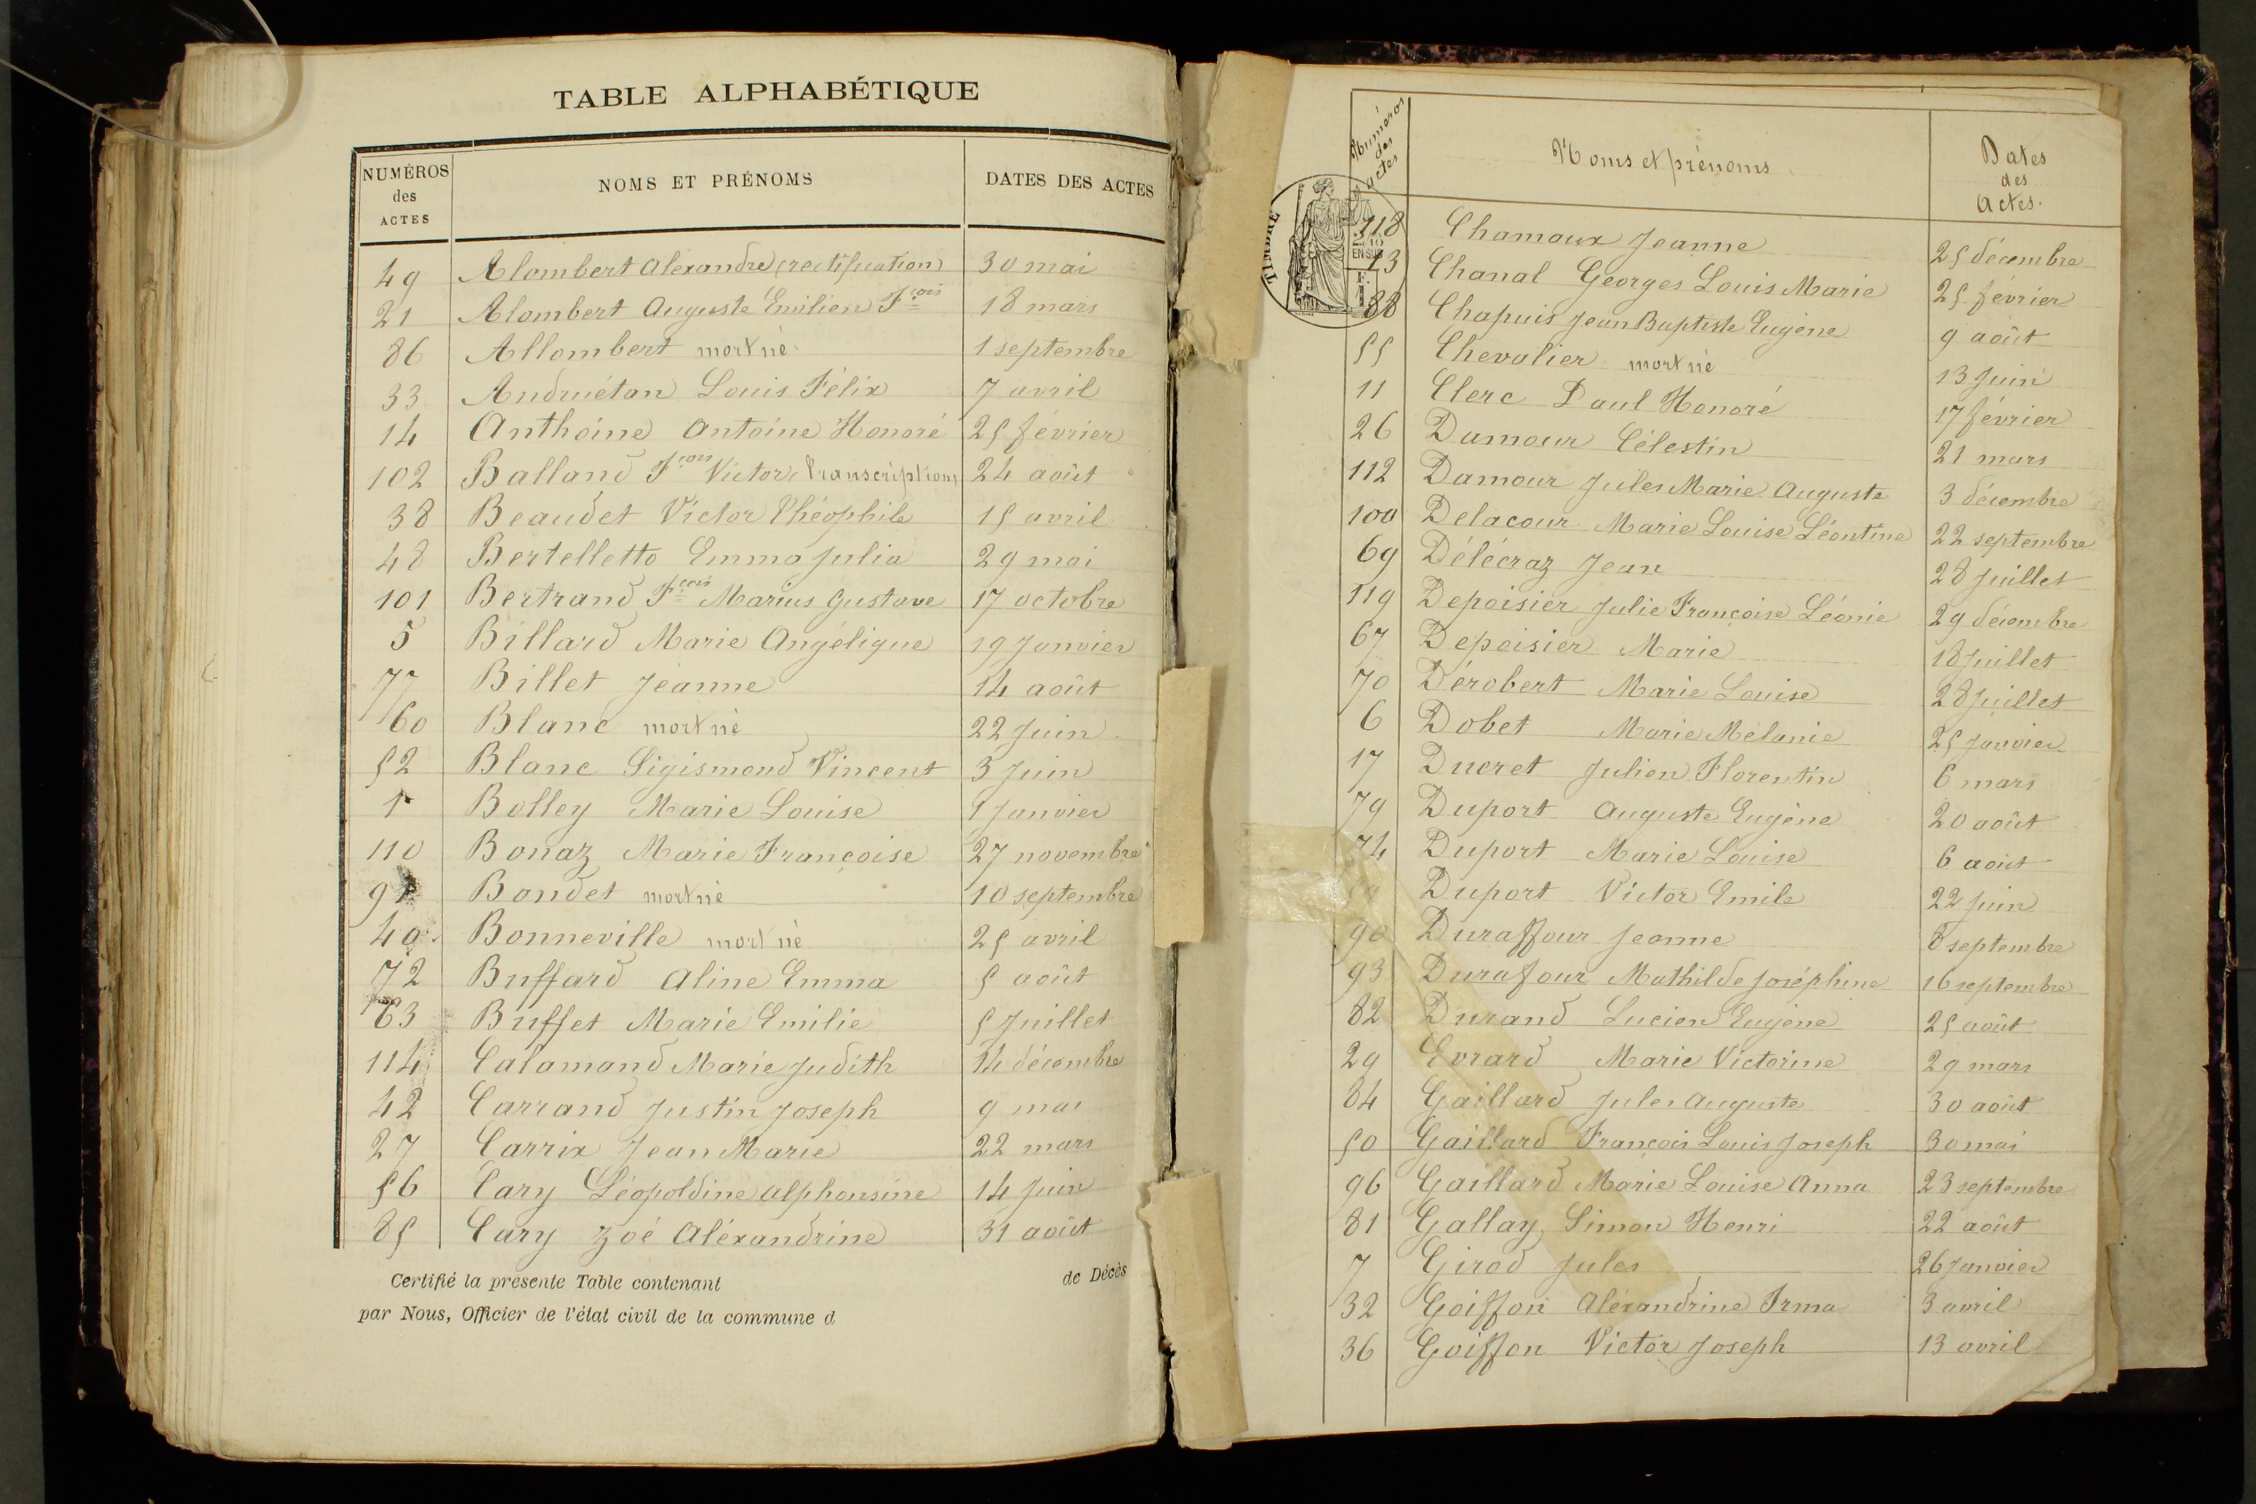 TABLE ALPHABÉTIQUE
NUMÉROS des ACTES NOMS ET PRÉNOMS DATES DES ACTES
49 Alombert Alexandre (rectification) 30 mai
21 Alombert Auguste Emilien Fcois 18 mars
86 Allombert mort né 1 septembre
33 Andruétan Louis Félix 7 avril
14 Anthoine Antoine Honoré 25 février
102 Balland Fcois Victor (transcription) 24 août
38 Beaudet Victor Théophile 15 avril
48 Bertelletto Emma Julia 29 mai
101 Bertrand Fcois Marius Gustave 17 octobre
5 Billard Marie Angélique 19 Janvier
77 Billet Jeanne 14 août
60 Blanc mort né 22 Juin
52 Blanc Sigismond Vincent 3 Juin
1 Bolley Marie Louise 1 Janvier
110 Bonaz Marie Françoise 27 novembre
91 Bondet mort né 10 septembre
40 Bonneville mort né 25 avril
72 Buffard Aline Emma 5 août
63 Buffet Marie Emilie 5 Juillet
114 Calamand Marie Judith 14 décembre
42 Carrand Justin Joseph 9 mai
27 Carrix Jean Marie 22 mars
56 Cary Léopoldine Alphonsine 14 Juin
85 Cary Zoé Aléxandrine 31 août
Certifié la présente Table contenant de Décès
par Nous, Officier de l'état civil de la commune d
Numéros des actes Noms et prénoms Dates des Actes.
TIMBRE
EN SUS
118 Chamoux Jeanne 25 décembre
13 Chanal Georges Louis Marie 25 février
88 Chapuis Jean Baptiste Eugène 9 août
55 Chevalier mort né 13 Juin
11 Clerc Paul Honoré 17 février
26 Damour Célestin 21 mars
112 Damour Jules Marie Auguste 3 décembre
100 Delacour Marie Louise Léontine 22 septembre
69 Délécraz Jean 28 Juillet
119 Depoisier Julie Françoise Léonie 29 décembre
67 Depoisier Marie 18 Juillet
70 Dérobert Marie Louise 28 Juillet
6 Dobet Marie Mélanie 25 Janvier
17 Ducret Julien Florentin 6 mars
79 Duport Auguste Eugène 20 août
74 Duport Marie Louise 6 août
Duport Victor Emile 22 Juin
90 Duraffour Jeanne 8 septembre
93 Durafour Mathilde Joséphine 16 septembre
82 Durand Lucien Eugène 25 août
29 Evrard Marie Victorine 29 mars
84 Gaillard Jules Auguste 30 août
50 Gaillard François Louis Joseph 30 mai
96 Gaillard Marie Louise Anna 23 septembre
81 Gallay Simon Henri 22 août
7 Girod Jules 26 Janvier
32 Goiffon Aléxandrine Irma 3 avril
36 Goiffon Victor Joseph 13 avril